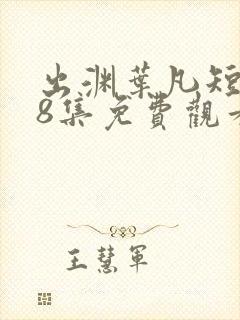 出渊葉凡短
8集免費觀看
王慧軍